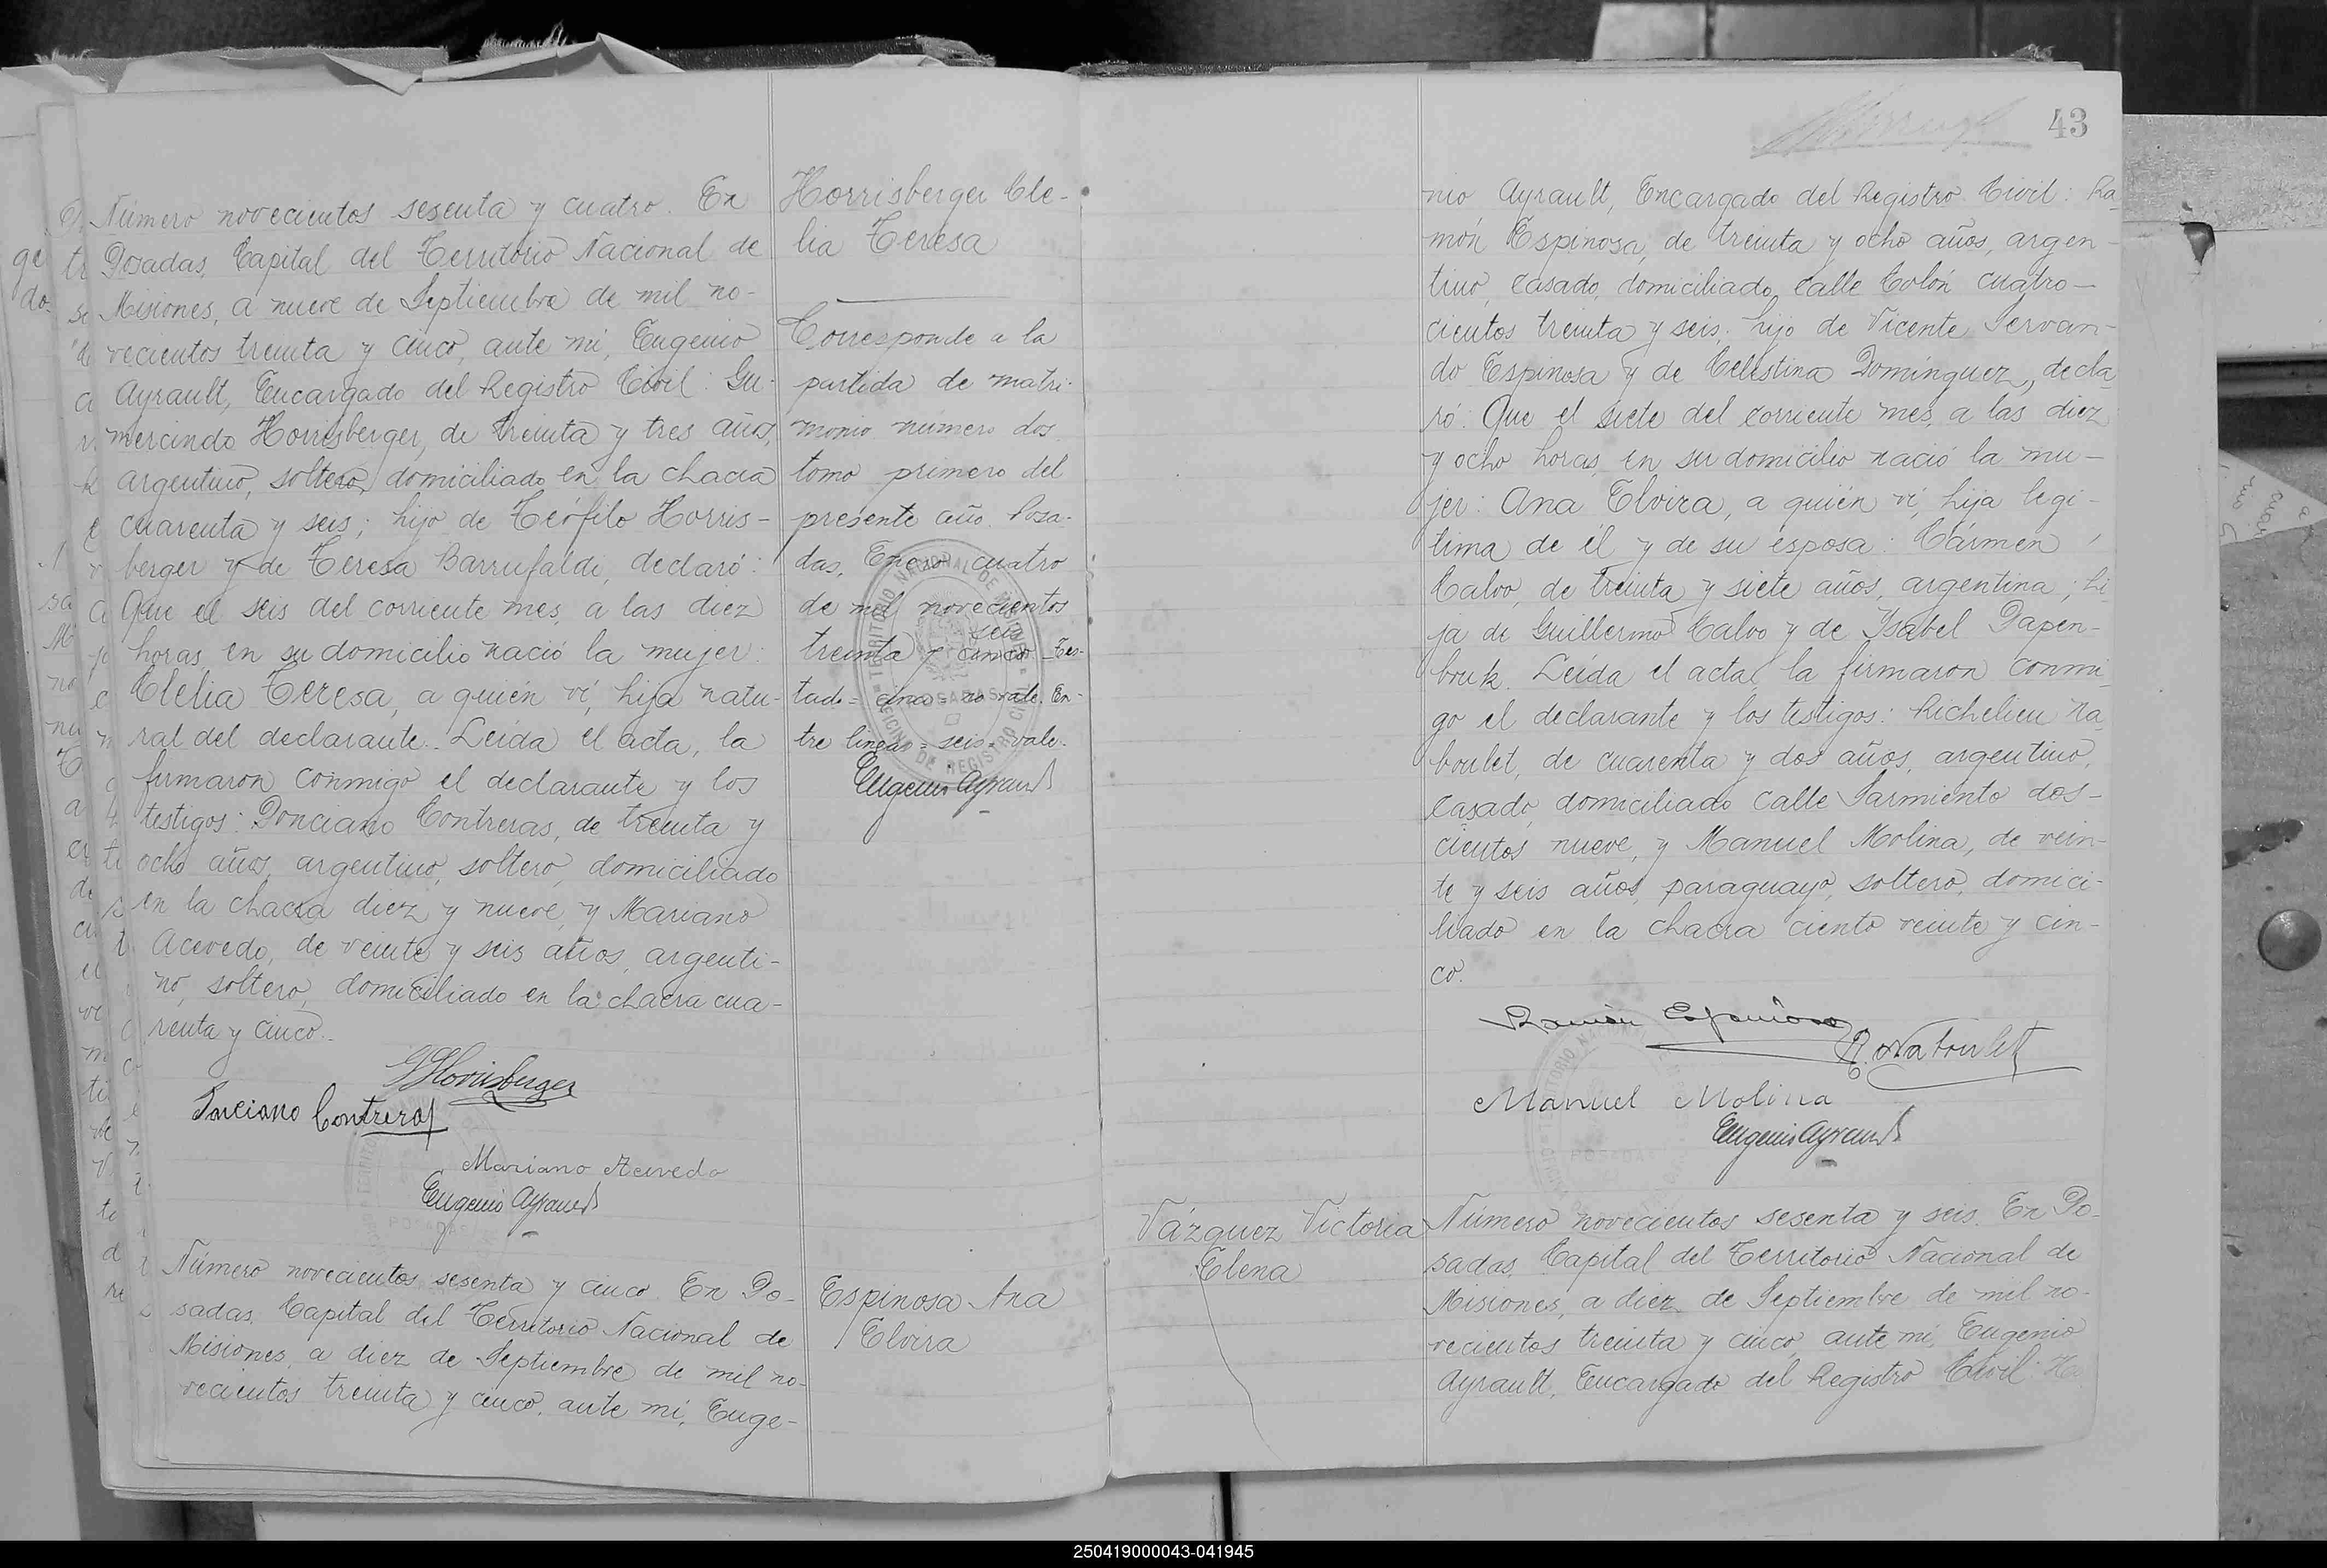 Número novecientos sesenta y cuatro. En
Posadas, Capital del Territorio Nacional de
Misiones, a nueve de Septiembre de mil no-
vecientos treinta y cinco, ante mi, Eugenio
Ayrault, Encargado del Registro Civil: Gu-
mercindo Horrisberger, de treinta y tres años,
argentino, soltero, domiciliado en la chacra
cuarenta y seis; hijo de Teófilo Horris-
berger y de Teresa Barrufaldi, declaró:
Que el seis del corriente mes, a las diez
horas, en su domicilio nació la mujer:
Clelia Teresa, a quién ví, hija natu-
ral del declarante. Leída el acta, la
firmaron conmigo el declarante y los
testigos: Ponciano Contreras, de treinta y
ocho años, argentino, soltero, domiciliado
en la chacra diez y nueve, y Mariano
Acevedo, de veinte y seis años, argenti-
no, soltero, domiciliado en la chacra cua-
renta y cinco.
GHorrisberger
Ponciano Contreras
Mariano Acevedo
Eugenio Ayrault
Horrisberger Cle-
lia Teresa
Corresponde a la
partida de matri-
monio número dos
tomo primero del
presente año. Posa-
das, Enero cuatro
de mil novecientos
seis
treinta y cinco = Tes-
tado = cinco = no vale. En-
tre lineas = seis = vale.
Eugenio Ayrault
TERRITORIO NACIONAL DE MISIONES
POSADAS
OFICINA DE REGISTRO CIVIL
Número novecientos sesenta y cinco. En Po-
sadas, Capital del Territorio Nacional de
Misiones, a diez de Septiembre de mil no-
vecientos treinta y cinco, ante mi, Euge-
Espinosa Ana
Elvira
43
nio Ayrault, Encargado del Registro Civil: Ra-
món Espinosa, de treinta y ocho años, argen-
tino, casado, domiciliado, calle Colón cuatro-
cientos treinta y seis; hijo de Vicente Servan-
do Espinosa y de Celestina Domínguez, decla-
ró: Que el siete del corriente mes, a las diez
y ocho horas, en su domicilio nació la mu-
jer: Ana Elvira, a quién ví, hija legí-
tima de él y de su esposa: Cármen
Calvo, de treinta y siete años, argentina; hi-
ja de Guillermo Calvo y de Ysabel Papen-
bruk. Leída el acta, la firmaron conmi-
go el declarante y los testigos: Richelieu Na-
boulet, de cuarenta y dos años, argentino,
casado, domiciliado calle Sarmiento dos-
cientos nueve, y Manuel Molina, de vein-
te y seis años, paraguayo, soltero, domici-
liado en la chacra ciento veinte y cin-
co.
Ramón Espinosa
R. Naboulet
Manuel Molina
Eugenio Ayrault
POSADAS
Vázquez Victoria
Elena
Número novecientos sesenta y seis. En Po-
sadas, Capital del Territorio Nacional de
Misiones, a diez de Septiembre de mil no-
vecientos treinta y cinco, ante mi, Eugenio
Ayrault, Encargado del Registro Civil:
250419000043-041945